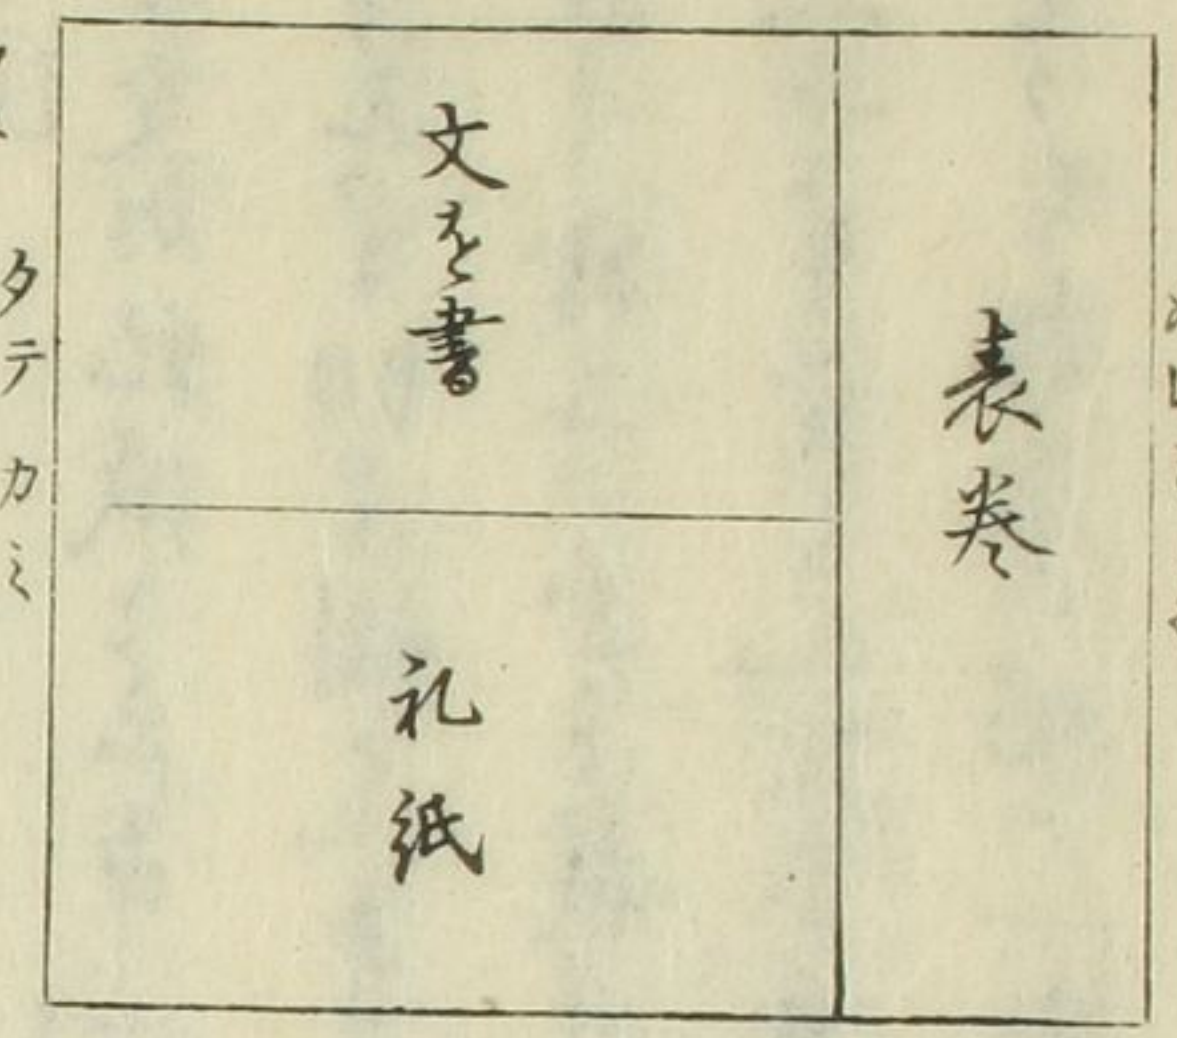 表巻
文を書
礼紙
タテカミ